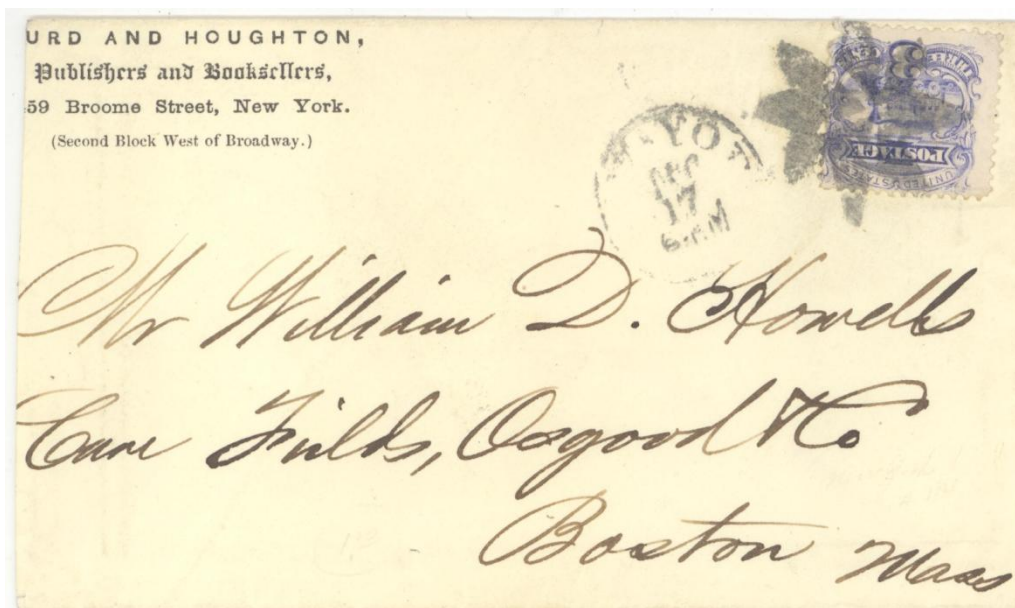 URD AND HOUGHTON,
Publishers and Booksellers,
59 Broome Street, New York.
(Second Block West of Broadway.)
POSTAGE
UNITED STATES
DEC
17
Mr William D. Howells
Care Fields, Osgood & Co
Boston Mass